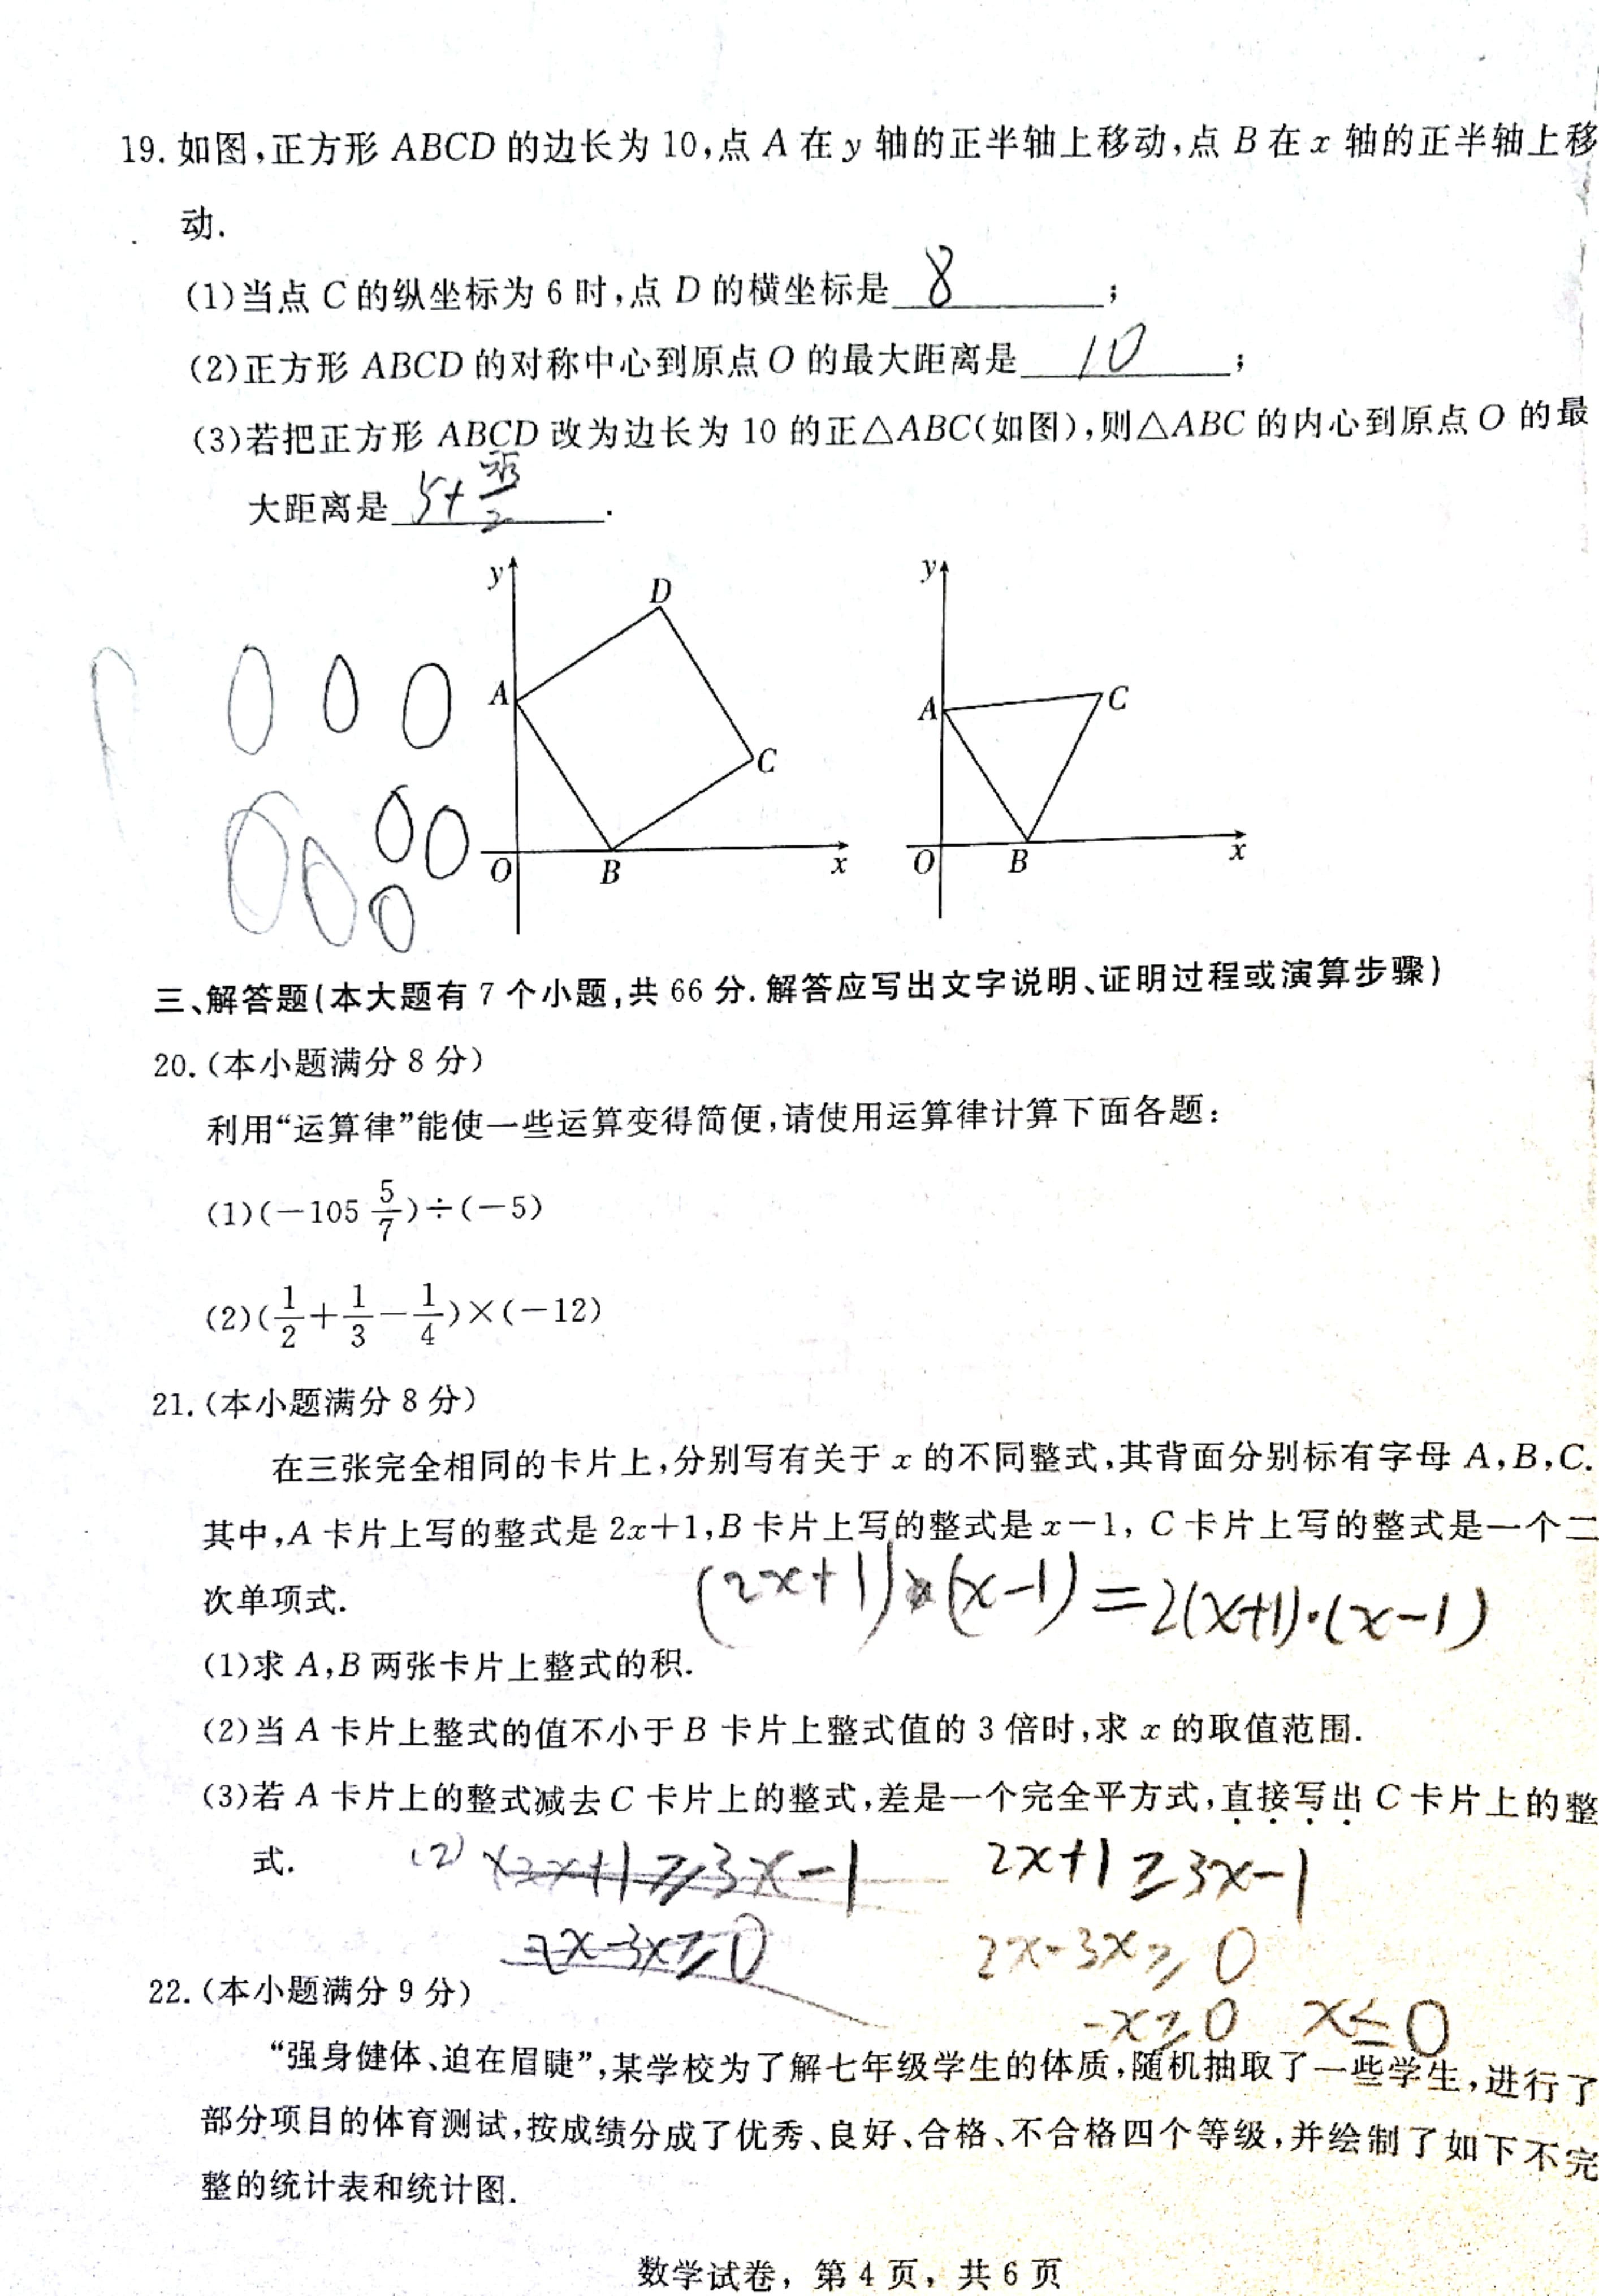 19. 如图,正方形 ABCD 的边长为 10,点 A 在 y 轴的正半轴上移动,点 B 在 x 轴的正半轴上移
动.
(1)当点 C 的纵坐标为 6 时,点 D 的横坐标是 8 ;
(2)正方形 ABCD 的对称中心到原点 O 的最大距离是 10 ;
(3)若把正方形 ABCD 改为边长为 10 的正△ABC(如图),则△ABC 的内心到原点 O 的最
大距离是 5+ .
y
D
A
C
O
B
x
y
A
C
O
B
x
三、解答题(本大题有 7 个小题,共 66 分.解答应写出文字说明、证明过程或演算步骤)
20.(本小题满分 8 分)
利用“运算律”能使一些运算变得简便,请使用运算律计算下面各题:
(1)(-105 5/7)÷(-5)
(2)(1/2+1/3-1/4)×(-12)
21.(本小题满分 8 分)
在三张完全相同的卡片上,分别写有关于 x 的不同整式,其背面分别标有字母 A,B,C.
其中,A 卡片上写的整式是 2x+1,B 卡片上写的整式是 x-1, C 卡片上写的整式是一个二
次单项式.
(2x+1)×(x-1)=2(x+1)·(x-1)
(1)求 A,B 两张卡片上整式的积.
(2)当 A 卡片上整式的值不小于 B 卡片上整式值的 3 倍时,求 x 的取值范围.
(3)若 A 卡片上的整式减去 C 卡片上的整式,差是一个完全平方式,直接写出 C 卡片上的整
式.
(2) 2x+1≥3x-1
2x+1≥3x-1
2x-3x≥0
2x-3x≥0
-x≥0 x≤0
22.(本小题满分 9 分)
“强身健体、迫在眉睫”,某学校为了解七年级学生的体质,随机抽取了一些学生,进行了
部分项目的体育测试,按成绩分成了优秀、良好、合格、不合格四个等级,并绘制了如下不完
整的统计表和统计图.
数学试卷，第 4 页，共 6 页